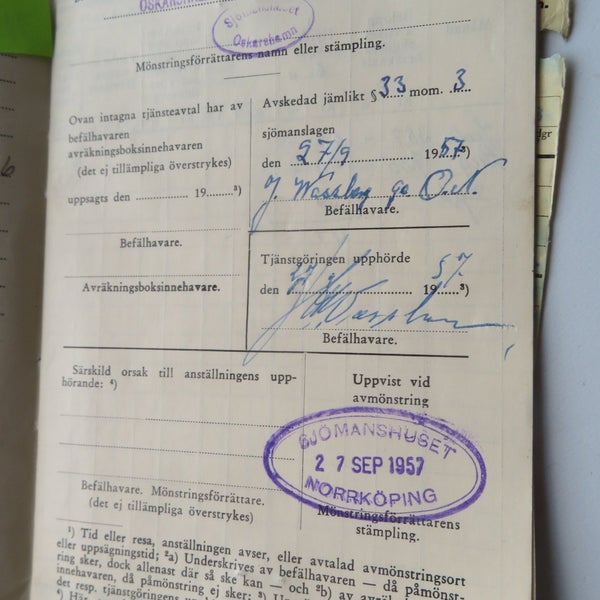 Sjömanshuset
Oskarshamn
Mönstringsförrättarens namn eller stämpling.
Ovan intagna tjänsteavtal har av
befälhavaren
avräkningsboksinnehavaren
(det ej tillämpliga överstrykes)
uppsagts den ............ 19........²)
Befälhavare.
Avräkningsboksinnehavare.
Avskedad jämlikt § 33 mom. 3
sjömanslagen
den 27/9 1957 ²)
J. Wassberg
Befälhavare.
Tjänstgöringen upphörde
den 27/9 1957 ³)
Befälhavare.
Särskild orsak till anställningens upp-
hörande: ⁴)
Befälhavare. Mönstringsförrättare.
(det ej tillämpliga överstrykes)
Uppvist vid
avmönstring
SJÖMANSHUSET
27 SEP 1957
NORRKÖPING
Mönstringsförrättarens
stämpling.
¹) Tid eller resa, anställningen avser, eller avtalad avmönstringsort
eller uppsägningstid; ²a) Underskrives av befälhavaren — då påmönst-
ring sker, dock allenast där så ske kan — och ²b) av
innehavaren, då påmönstring ej sker; ³)
det resp. tjänstgöringens
⁴)